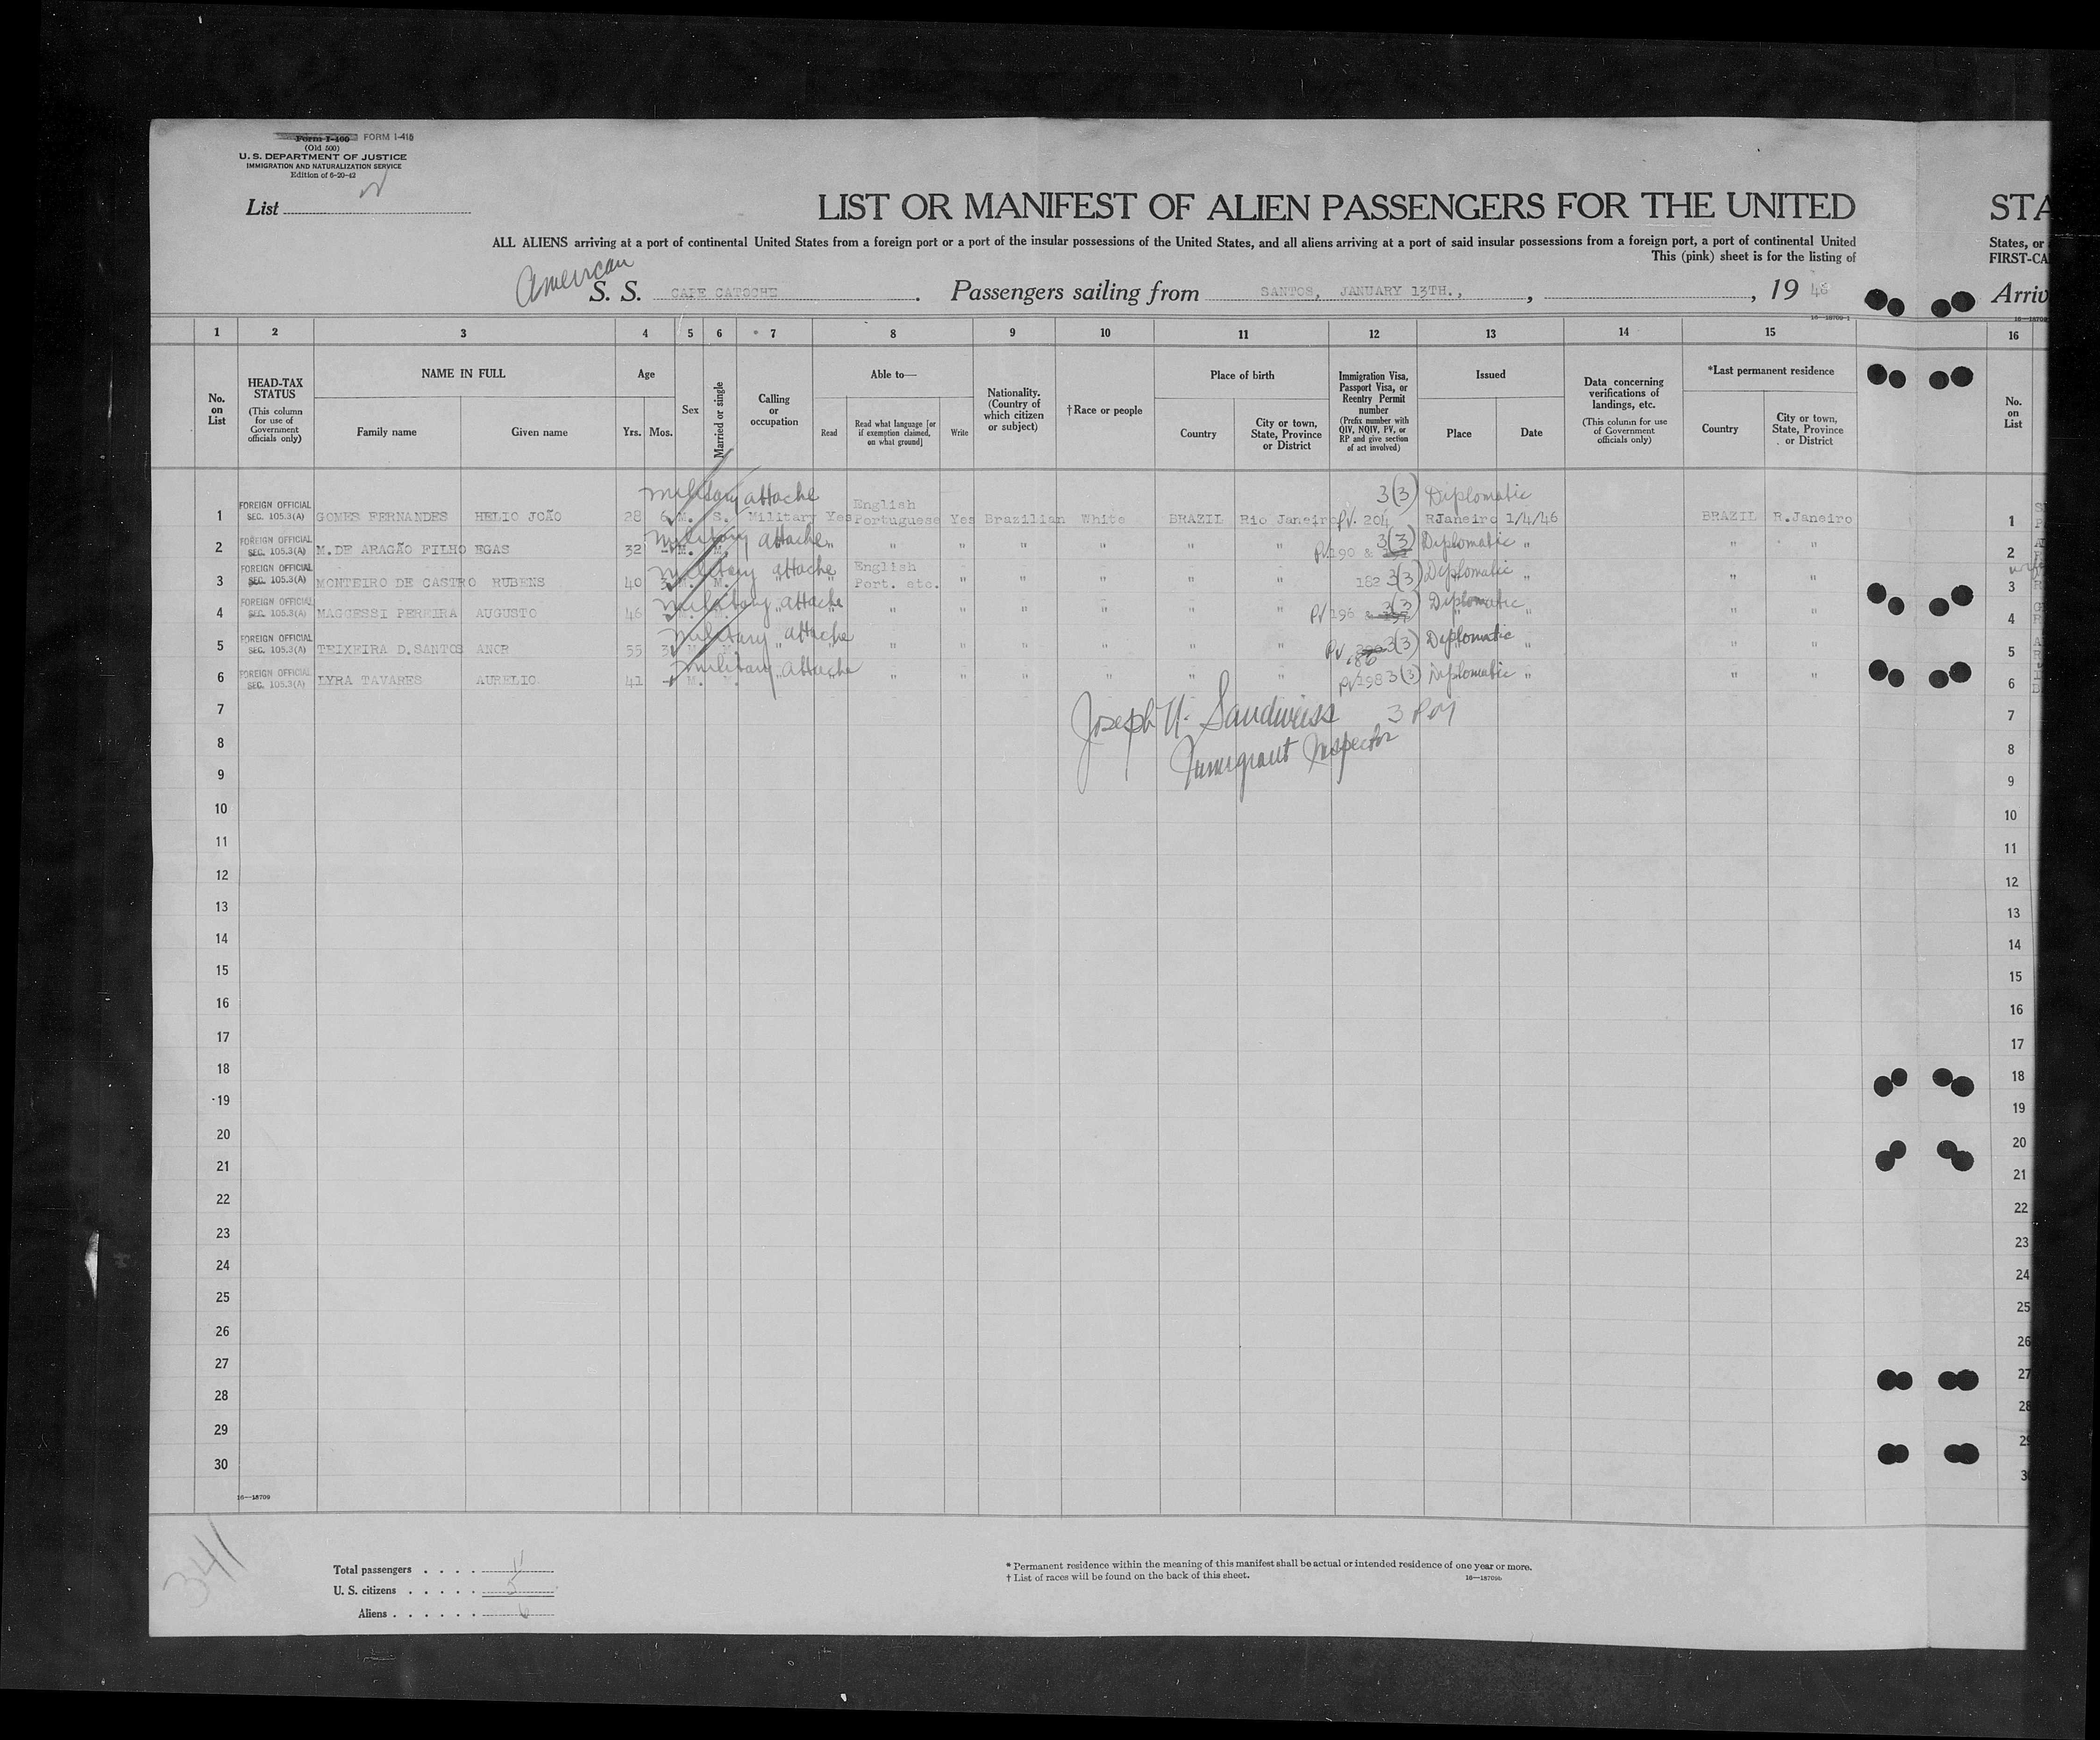 Form I-400 FORM I-415
(Old 500)
U. S. DEPARTMENT OF JUSTICE
IMMIGRATION AND NATURALIZATION SERVICE
Edition of 6-20-42
List
LIST OR MANIFEST OF ALIEN PASSENGERS FOR THE UNITED
STA
ALL ALIENS arriving at a port of continental United States from a foreign port or a port of the insular possessions of the United States, and all aliens arriving at a port of said insular possessions from a foreign port, a port of continental United
States, or
This (pink) sheet is for the listing of
FIRST-CA
American
S. S. CAPE CATOCHE . Passengers sailing from SANTOS, JANUARY 13TH., , , 19 46
Arriv
16—18709-1
1 2 3 4 5 6 7 8 9 10 11 12 13 14 15 16
No. on List
HEAD-TAX STATUS
(This column for use of Government officials only)
NAME IN FULL
Family name Given name
Age
Yrs. Mos.
Sex
Married or single
Calling or occupation
Able to—
Read
Read what language [or if exemption claimed, on what ground]
Write
Nationality. (Country of which citizen or subject)
†Race or people
Place of birth
Country
City or town, State, Province or District
Immigration Visa, Passport Visa, or Reentry Permit number
(Prefix number with QIV, NQIV, PV, or RP and give section of act involved)
Issued
Place Date
Data concerning verifications of landings, etc.
(This column for use of Government officials only)
*Last permanent residence
Country
City or town, State, Province or District
No. on List
military attache 3(3) Diplomatic
1 FOREIGN OFFICIAL SEC. 105.3(A) GOMES FERNANDES HELIO JOÃO 28 6 M. S. Military Yes English Portuguese Yes Brazilian White BRAZIL Rio Janeiro PV. 204 RJaneiro 1/4/46 BRAZIL R.Janeiro 1
military attache 3(3) Diplomatic
2 FOREIGN OFFICIAL SEC. 105.3(A) M.DE ARAGÃO FILHO EGAS 32 - M. M. " " " " " " " " PV 190 & " " " 2
military attache 3(3) Diplomatic
3 FOREIGN OFFICIAL SEC. 105.3(A) MONTEIRO DE CASTRO RUBENS 40 3 M. M. " " English Port. etc. " " " " " 182 " " " 3
military attache 3(3) Diplomatic
4 FOREIGN OFFICIAL SEC. 105.3(A) MAGGESSI PEREIRA AUGUSTO 46 " " " " " " " PV 196 " " " 4
military attache 3(3) Diplomatic
5 FOREIGN OFFICIAL SEC. 105.3(A) TEIXEIRA D.SANTOS ANOR 55 3 M. M. " " " " " " " " PV 186 " " " 5
military attache 3(3) Diplomatic
6 FOREIGN OFFICIAL SEC. 105.3(A) LYRA TAVARES AURELIO 41 - M. M. " " " " " " " " PV 198 " " " 6
7 Joseph Sandweiss 7
8 Immigrant Inspector 8
9 9
10 10
11 11
12 12
13 13
14 14
15 15
16 16
17 17
18 18
19 19
20 20
21 21
22 22
23 23
24 24
25 25
26 26
27 27
28 28
29 29
30
16—18709
341
Total passengers . . . . 11
U. S. citizens . . . . . 5
Aliens . . . . . . 6
* Permanent residence within the meaning of this manifest shall be actual or intended residence of one year or more.
† List of races will be found on the back of this sheet.